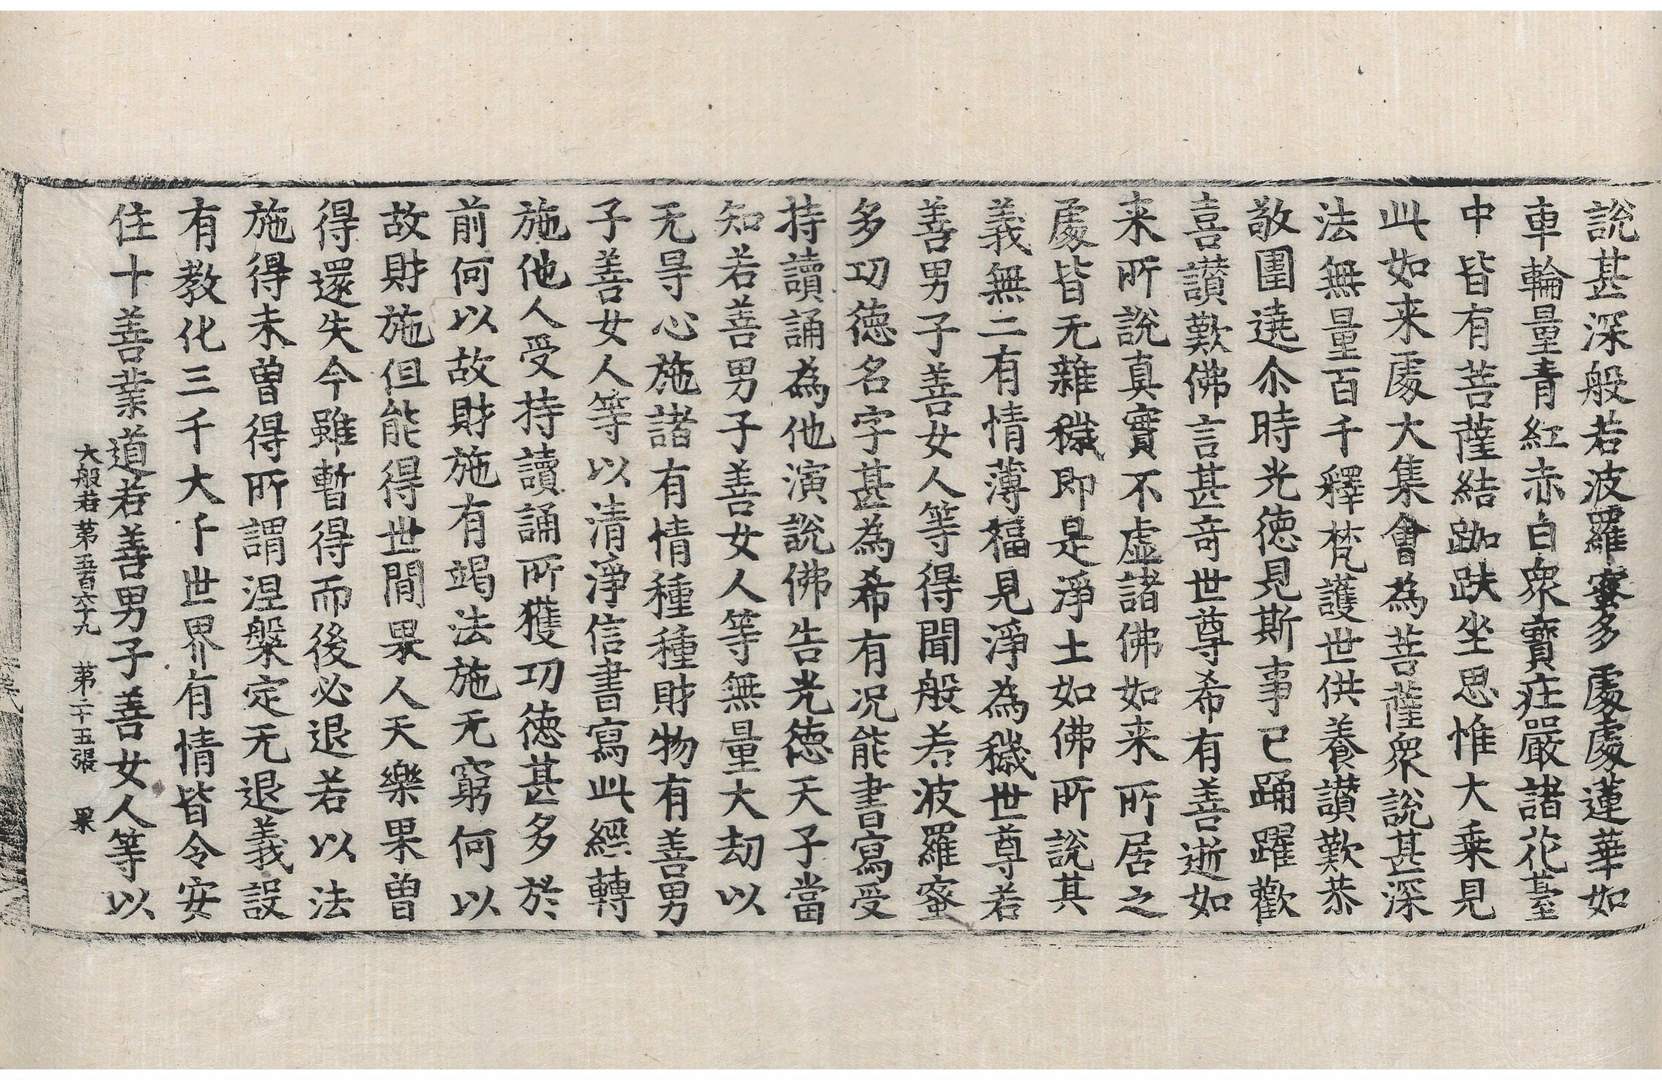 說甚深般若波羅蜜多處處蓮華如
車輪量青紅赤白衆寶莊嚴諸花臺
中皆有菩薩結跏趺坐思惟大乗見
此如来處大集會為菩薩衆說甚深
法無量百千釋梵護世供養讃歎恭
敬圍遶尒時光徳見斯事已踊躍歡
喜讃歎佛言甚奇世尊希有善逝如
来所說真實不虛諸佛如来所居之
處皆无雜穢即是淨土如佛所說其
義無二有情薄福見淨為穢世尊若
善男子善女人等得聞般若波羅蜜
多功徳名字甚為希有况能書寫受
持讀誦為他演說佛告光徳天子當
知若善男子善女人等無量大劫以
无㝵心施諸有情種種財物有善男
子善女人等以清淨信書寫此經轉
施他人受持讀誦所獲功徳甚多於
前何以故財施有竭法施无窮何以
故財施但能得世閒果人天樂果曽
得還失今雖暫得而後必退若以法
施得未曽得所謂涅槃定无退義設
有教化三千大千世界有情皆令安
住十善業道若善男子善女人等以
大般若第五百六十九 第二十五張 果